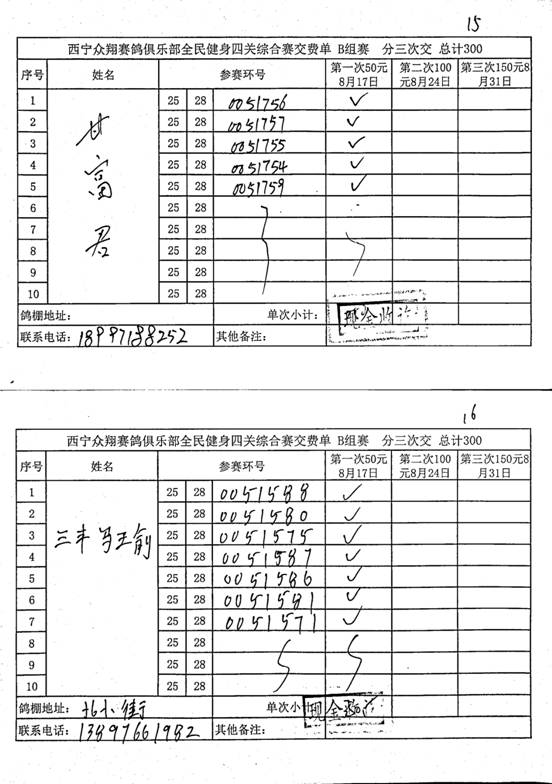 15
西宁众翔赛鸽俱乐部全民健身四关综合赛交费单 B组赛 分三次交 总计300
序号 姓名 参赛环号 第一次50元8月17日 第二次100元8月24日 第三次150元8月31日
1 25 28 0051756 ✓
2 25 28 0051757 ✓
3 25 28 0051755 ✓
4 25 28 0051754 ✓
5 25 28 0051759 ✓
6 25 28
7 25 28
8 25 28
9 25 28
10 25 28
甘富君
鸽棚地址： 单次小计： 现金收讫
联系电话：18997188252 其他备注：
16
西宁众翔赛鸽俱乐部全民健身四关综合赛交费单 B组赛 分三次交 总计300
序号 姓名 参赛环号 第一次50元8月17日 第二次100元8月24日 第三次150元8月31日
1 25 28 0051588 ✓
2 25 28 0051580 ✓
3 三丰 马王俞 25 28 0051575 ✓
4 25 28 0051587 ✓
5 25 28 0051586 ✓
6 25 28 0051581 ✓
7 25 28 0051571 ✓
8 25 28
9 25 28
10 25 28
鸽棚地址： 北小街 单次小 现金
联系电话：13897661982 其他备注：